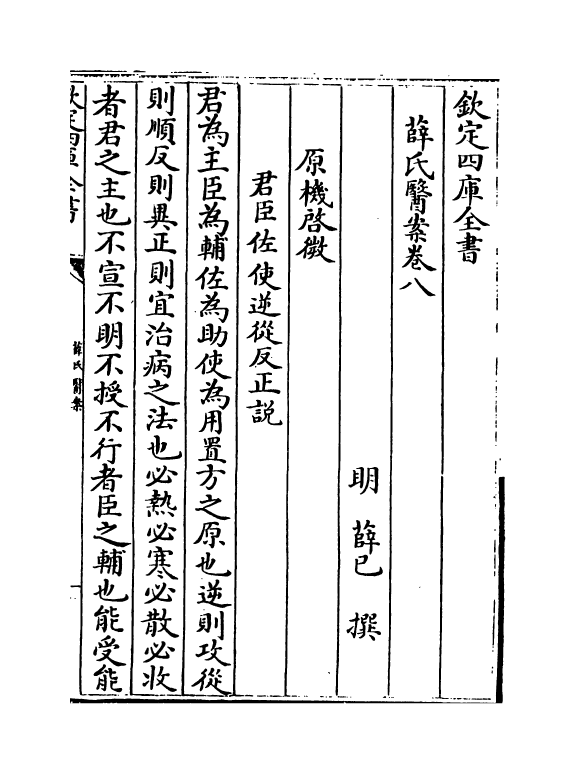 欽定四庫全書
薛氏醫案卷八
明 薛已 撰
原機啓微
君臣佐使逆從反正説
君為主臣為輔佐為助使為用置方之原也逆則攻從
則順反則異正則宜治病之法也必熱必寒必散必收
者君之主也不宣不明不授不行者臣之輔也能受能
欽定四庫全書
薛氏醫案
一